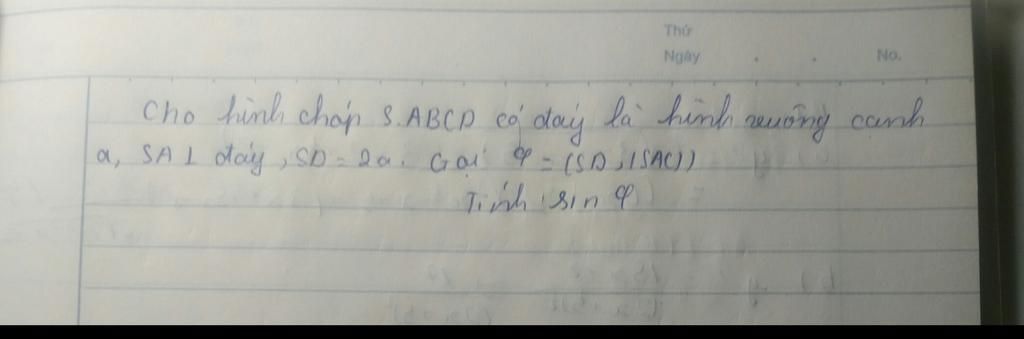 Thứ
Ngày . . No.
Cho hình chóp S.ABCD có đáy là hình vuông cạnh
a, SA ⊥ đáy, SD = 2a. Gọi φ = (SD, (SAC))
Tính sin φ